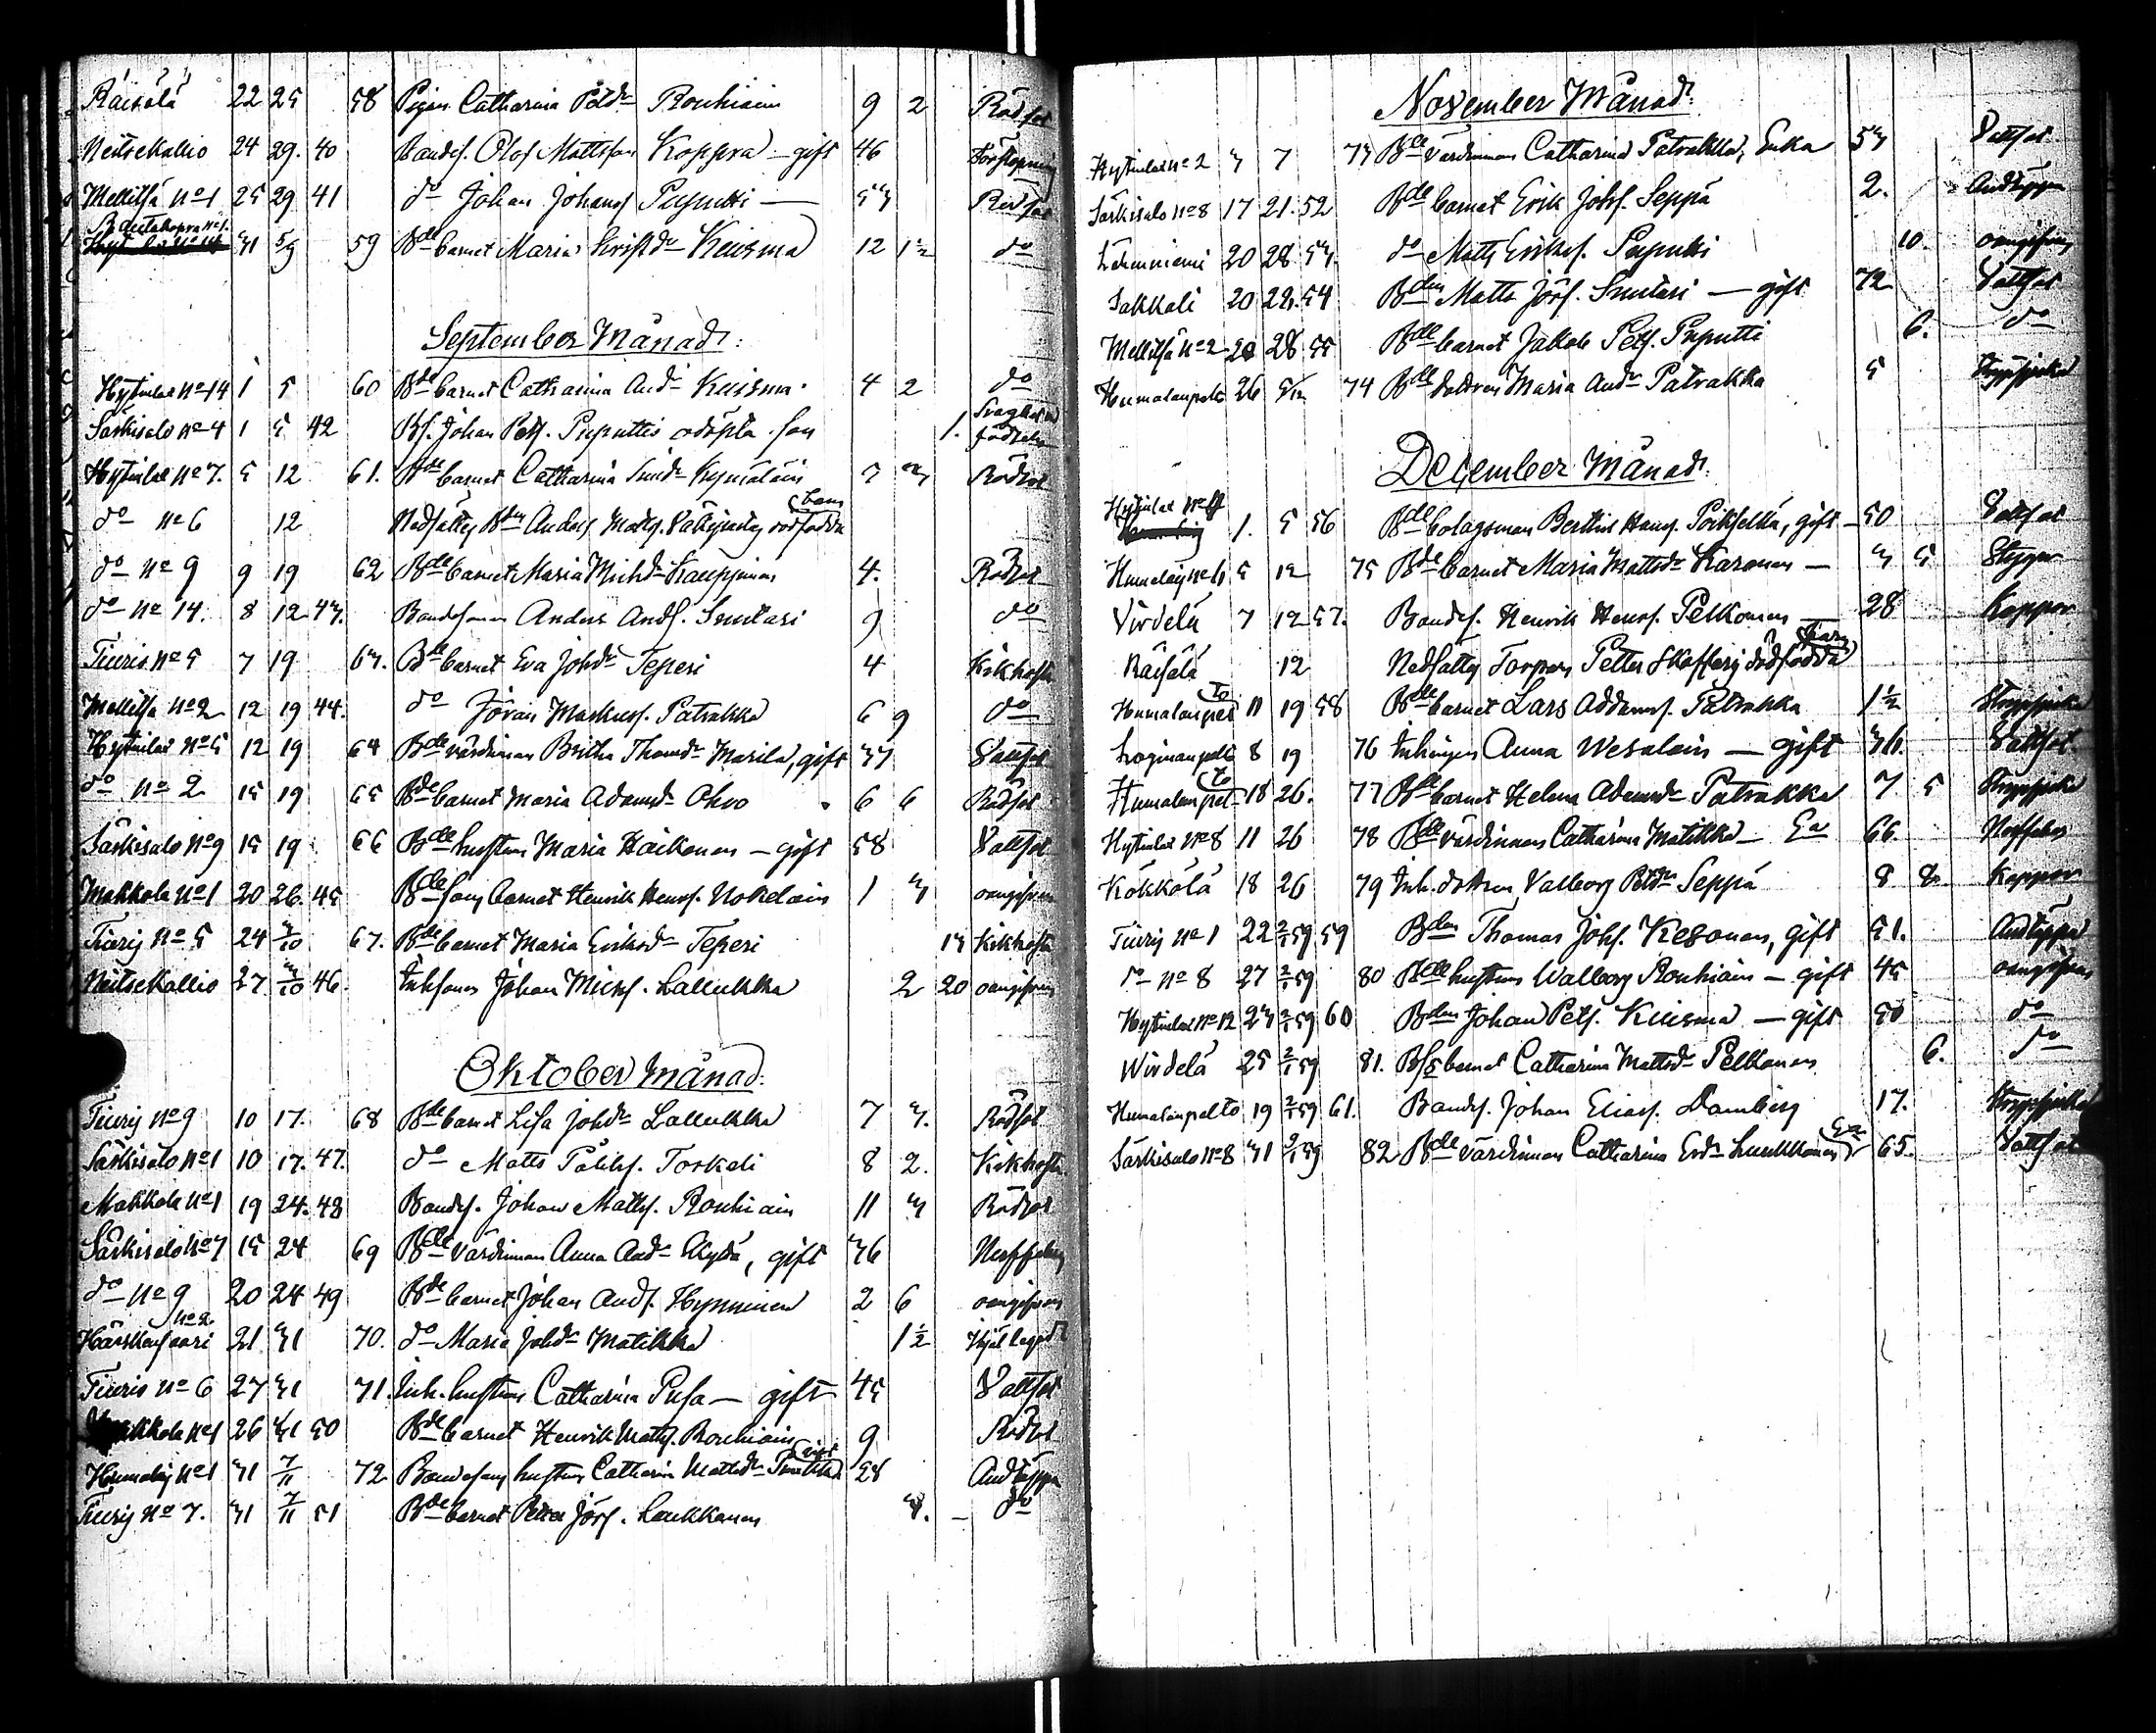 Räisälä 22 25 58 Pigan Catharina Petdr Rouhiain 9 2 Rödsot
Neitsekallio 24 29. 40 Bandes. Olof Mattsson Koppra - gift 46
Mellitsä No 1 25 29 41 do Johan Johans. Puputti 53 Rödsot
31 5/9 59 Bde barnet Maria Kristdr Kuisma 12 1½ do
September Månad:
Hytinlax No 14 1 5 60 Bde barnet Catharina Andr Kuisma 4 2 do
Särkisalo No 4 1 5 42 Bs. Johan Pets. Puputtis odöpta son 1.
Hytinlax No 7. 5 12 61. Bde barnet Catharina Kymäläin 7 3 Rödsot
do No 6 12 Bdn Anders Matts. dödfödda barn
do No 9 9 19 62 Bde barnet Maria Michdr 4. Rödsot
do No 14. 8 12 43. Bondesonen Anders Ands. Smutasi 9 do
Tiuris No 5 7 19 63. Bde barnet Eva Johdr Teperi 4 Kikhosta
Mellitsä No 2 12 19 44. do Jöran Markuss. Patrakka 6 9 do
Hytinlax No 5 12 19 64 Bde värdinnan Britha Thomdr Marila, gift 37 Vattsot
do No 2 15 19 65 Bde barnet Maria Adamsdr Ohvo 6 6 Rödsot
Särkisalo No 9 15 19 66 Bde hustrun Maria Häikönen - gift 58 Vattsot
Makkola No 1 20 26 45 Bde sons barnet Henrik Henrs. Nokelain 1 3 oangifven
Tiuris No 5 24 3/10 67. Bde barnet Maria Eriksdr Teperi 13 Kikhosta
Neitsekallio 27 3/10 46. Inhsonen Johan Mich. Lallukka 2 20 oangifven
Oktober Månad:
Tiuris No 9 10 17. 68 Bde barnet Lisa Johdr Lallukka 7 3. Rödsot
Särkisalo No 1 10 17. 47. do Matts Påhls. Torkkeli 8 2. Kikhosta
Makkola No 1 19 24. 48 Bondes. Johan Matts. Rouhiain 11 3 Rödsot
Särkisalo No 7 15 24 69 Bde värdinnan Anna Andr, gift 36 Nerffeber
do No 9 20 24 49 Bde barnet Johan Ands. Hynninen 2 6 oangifven
Härskansaari No 2 21 31 70. do Maria Johdr Matikka 1½
Tiuris No 6 27 31 71. Inh. hustrun Catharina Pusa - gift 45 Vattsot
Makkola No 1 26 31 50 Bde barnet Henrik Matts. Rouhiain 9 Rödsot
No 1 31 7/11 72 Bondesons hustrun Catharina Mattsdr gift 28 Andtäppa
Tiuris No 7. 31 7/11 51 Bde barnet Petter Jörs. Laukkanen 3. do
November Månad:
Hytinlax No 2 3 7 73 Bde värdinnan Catharina Patrakka, Enka 53 Vattsot
Särkisalo No 8 17 21. 52 Bde barnet Erik Johs. Seppä 2. Andtäppa
20 28 53. do Matts Eriks. Puputti 10. oangifven
Sakkali 20 28. 54 Bden Matts Jörs. Smutasi - gift 72 Vattsot
Mellitsä No 2 28 55 Bde barnet Jakob Pets. Puputti 6. do
Humalanpelto 26 5/12 74 Bde dottren Maria Andr Patrakka 5
December Månad:
Hytinlax 1. 5 56 Bde bolagsman Berthil Hans. Poikselkä, gift - 50 Vattsot
5 12 75 Bde barnet Maria Mattsdr Karonen - 3 5
Virdelä 7 12 57. Bondes. Henrik Henrs. Pelkonen 28 Koppor
Räisälä 12 Torparen Petter dödfödda barn
Humalanpelto 11 19 58 Bde barnet Lars Adams. Patrakka 1½
8 19 76 Inhingen Anna Wesalain - gift 36. Vattsot
Humalanpelto 18 26. 77 Bde barnet Helena Adamsdr Patrakka 7 5
Hytinlax No 8 11 26 78 Bde värdinnan Catharina Matikka Ea 66. Nerffeber
Kökkölä 18 26 79 Inh. dottren Valborg Petdr Seppä 8 8 Koppor
Tiuris No 1 22 2/1 59 59 Bden Thomas Johs. Kesonen, gift 51. Andtäppa
do No 8 27 2/1 59 80 Bde hustrun Walborg Rouhiain - gift 45 oangifven
Hytinlax No 12 23 2/1 59 60 Bden Johan Pets. Kuisma - gift 50 do
Wirdelä 25 2/1 59 81. Bs barnet Catharina Mattsdr Pelkonen 6. do
Humalanpelto 19 2/1 59 61. Bondes. Johan Elias. Damberg 17.
Särkisalo No 8 31 2/1 59 82 Bde värdinnan Catharina Ea 65. Vattsot